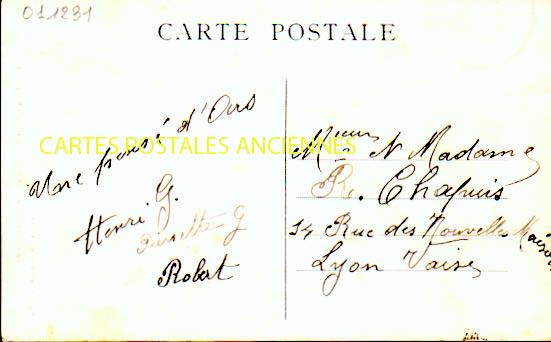 011231
CARTE POSTALE
CARTES POSTALES ANCIENNES
Une pensé d'Ars
Henri G.
G
Robert
Mr N Madame
R. Chapuis
14 Rue des Nouvelles Maisons
Lyon Vaise